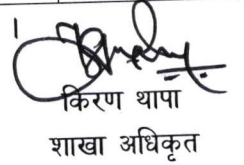 किरण थापा
शाखा अधिकृत